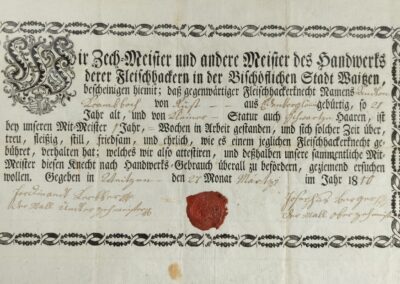 Wir Zech-Meister und andere Meister des Handwerks
derer Fleischhackern in der Bischöflichen Stadt Waitzen,
bescheinigen hiemit; daß gegenwärtiger Fleischhackerknecht Namens
von aus gebürtig, so 21
Jahr alt, und von Statur auch Haaren, ist
bey unseren Mit-Meister / Jahr, – Wochen in Arbeit gestanden, und sich solcher Zeit über,
treu, fleißig, still, friedsam, und ehrlich, wie es einem jeglichen Fleischhackerknecht ge-
bühret, verhalten hat; welches wir also attestiren, und deßhalben unsere sammentliche Mit-
Meister diesen Knecht nach Handwerks-Gebrauch überall zu befördern, geziemend ersuchen
wollen. Gegeben in Waitzen den 21 Monat Martzy im Jahr 1810
Ferdinand